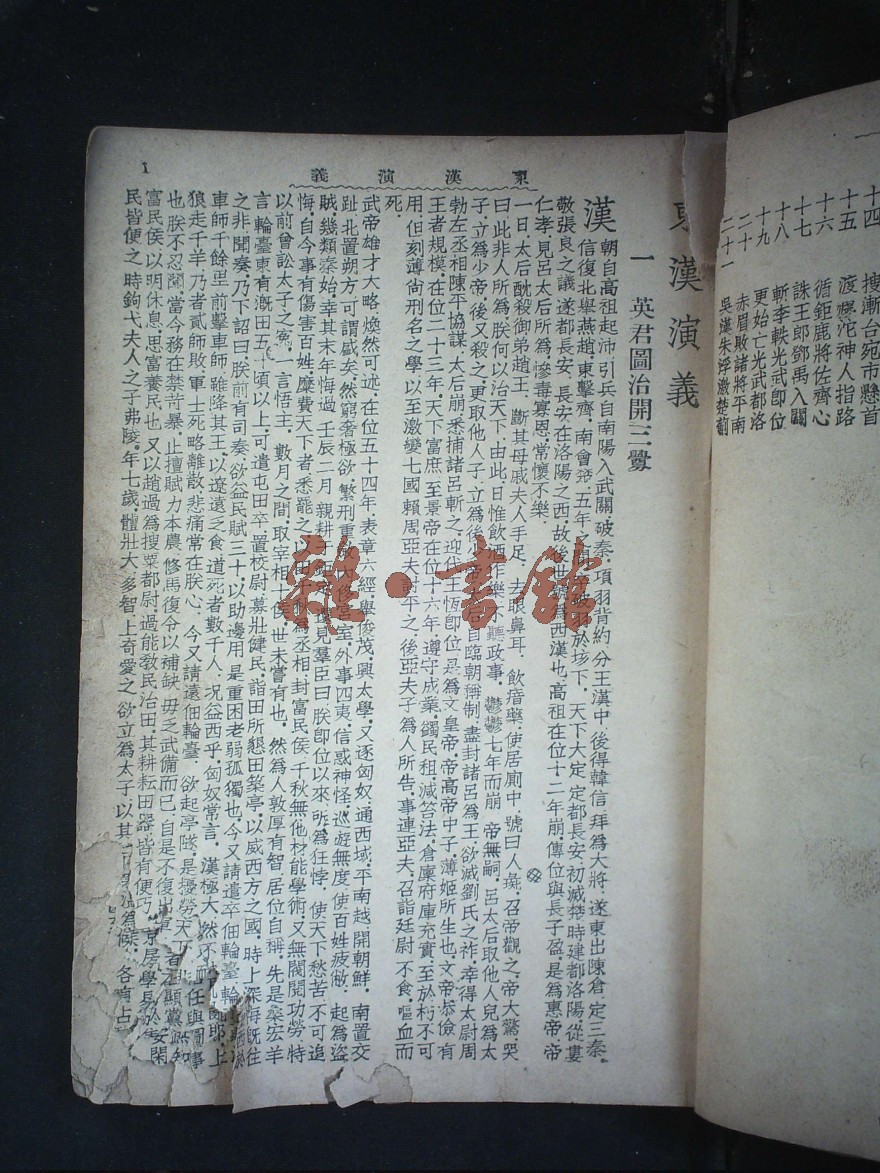 十四 搜漸台宛市懸首
十五 渡滹沱神人指路
十六 循鉅鹿將佐齊心
十七 誅王郎鄧禹入關
十八 斬李軼光武卽位
十九 更始亡光武都洛
二十 赤眉敗諸將平南
二十一 吳漢朱浮激楚薊
東漢演義
東漢演義
1
一 英君圖治開三釁
漢朝自高祖起沛引兵自南陽入武關破秦項羽背約分王漢中後得韓信拜爲大將遂東出陳倉定三秦
信復北舉燕趙東擊齊南會
五年
破羽於垓下天下大定定都長安初滅楚時建都洛陽從婁
敬張良之議遂都長安長安在洛陽之西故後世號爲西漢也高祖在位十二年崩傳位與長子盈是爲惠帝帝
仁孝見呂太后所爲慘毒寡恩常懷不樂
一日太后酖殺御弟趙王斷其母戚夫人手足去眼鼻耳飲瘖藥使居廁中號曰人彘召帝觀之帝大驚哭
曰此非人所爲朕何以治天下由此日惟飲酒作樂不聽政事鬱鬱七年而崩帝無嗣呂太后取他人兒爲太
子立爲少帝後又殺之更取他人子立爲後少帝
后自臨朝稱制盡封諸呂爲王欲滅劉氏之祚幸得太尉周
勃左丞相陳平協謀太后崩悉捕諸呂斬之迎代王恆卽位是爲文皇帝帝高帝中子薄姬所生也文帝恭儉有
王者規模在位二十三年天下富庶至景帝在位十六年遵守成業蠲民租減笞法倉廩府庫充實至於朽不可
用但刻薄尙刑名之學以至激變七國賴周亞夫討平之後亞夫子爲人所告事連亞夫召詣廷尉不食嘔血而
死
武帝雄才大略煥然可述在位五十四年表章六經舉俊茂興太學又逐匈奴通西域平南越開朝鮮南置交
趾北置朔方可謂盛矣然窮奢極欲繁刑重斂內修宮室外事四夷信惑神怪巡遊無度使百姓疲敝起爲盜
賊幾類秦始幸其末年悔過壬辰二月親耕
見羣臣曰朕卽位以來所爲狂悖使天下愁苦不可追
悔自今事有傷害百姓糜費天下者悉罷之以田千秋爲丞相封富民侯千秋無他材能學術又無閥閱功勞特
以前曾訟太子之冤一言悟主數月之間取宰相十侯世未嘗有也然爲人敦厚有智居位自稱先是桑宏羊
言輪臺東有漑田五千頃以上可遣屯田卒置校尉募壯健民詣田所懇田築亭以威西方之國時上深悔旣往
之非聞奏乃下詔曰朕前有司奏欲益民賦三十以助邊用是重困老弱孤獨也今又請遣卒佃輪臺輪
車師千餘里前擊車師雖降其王以遼遠乏食道死者數千人況益西乎匈奴常言漢極大然不耐飢
狼走千羊乃者貳師敗軍士死略離散悲痛常在朕心今又請遠佃輪臺欲起亭隧是擾勞天下
也朕不忍聞當今務在禁苛暴止擅賦力本農修馬復令以補缺毋乏武備而已自是不復出
富民侯以明休息思富養民也又以趙過爲搜粟都尉過能敎民治田其耕耘田器皆有便巧
民皆便之時鉤弋夫人之子弗陵年七歲體壯大多智上奇愛之欲立爲太子以其
各有占
雜·書館